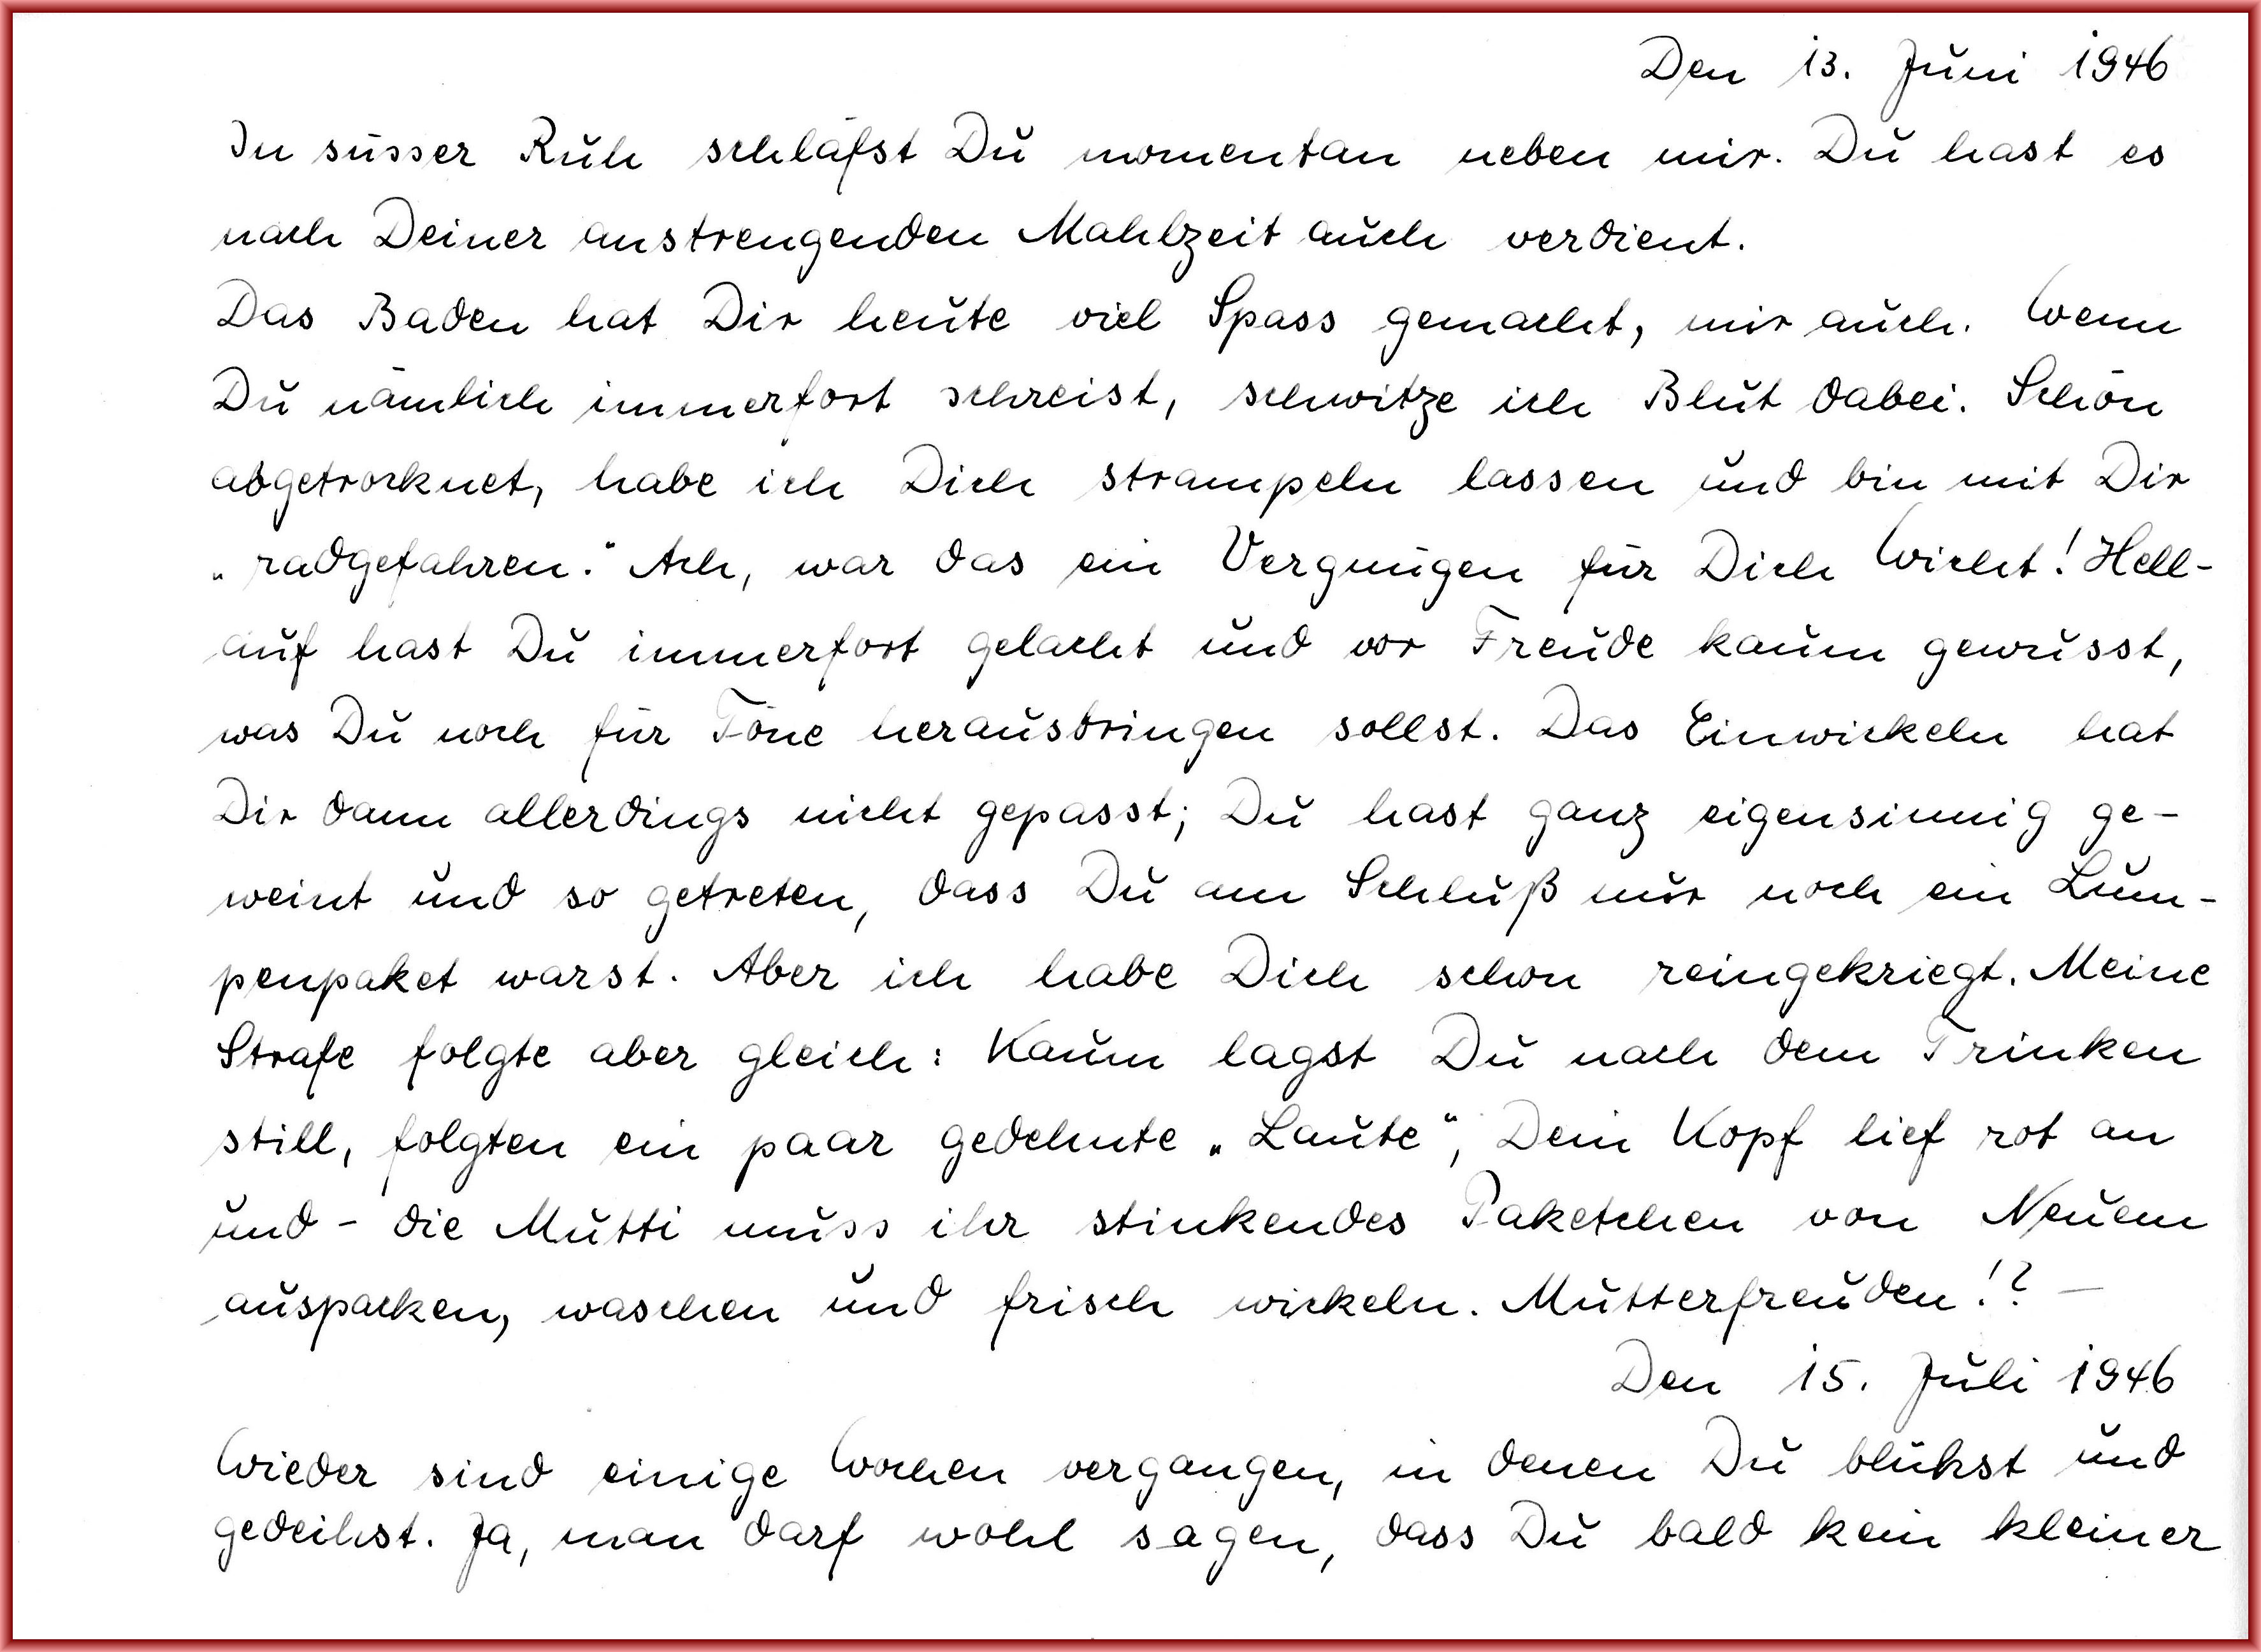 Den 13. Juni 1946
In süsser Ruh schläfst Du momentan neben mir. Du hast es
nach Deiner anstrengenden Mahlzeit auch verdient.
Das Baden hat Dir heute viel Spass gemacht, mir auch. Wenn
Du nämlich immerfort schreist, schwitze ich Blut dabei. Schön
abgetrocknet, habe ich Dich strampeln lassen und bin mit Dir
„radgefahren.“ Ach, war das ein Vergnügen für Dich Wicht! Hell-
auf hast Du immerfort gelacht und vor Freude kaum gewusst,
was Du noch für Töne herausbringen sollst. Das Einwickeln hat
Dir dann allerdings nicht gepasst; Du hast ganz eigensinnig ge-
weint und so getreten, dass Du am Schluß nur noch ein Lum-
penpaket warst. Aber ich habe Dich schon reingekriegt. Meine
Strafe folgte aber gleich: Kaum lagst Du nach dem Trinken
still, folgten ein paar gedehnte „Laute“, Dein Kopf lief rot an
und - die Mutti muss ihr stinkendes Paketchen von Neuem
auspacken, waschen und frisch wickeln. Mutterfreuden!? –
Den 15. Juli 1946
Wieder sind einige Wochen vergangen, in denen Du blühst und
gedeihst. Ja, man darf wohl sagen, dass Du bald kein kleiner